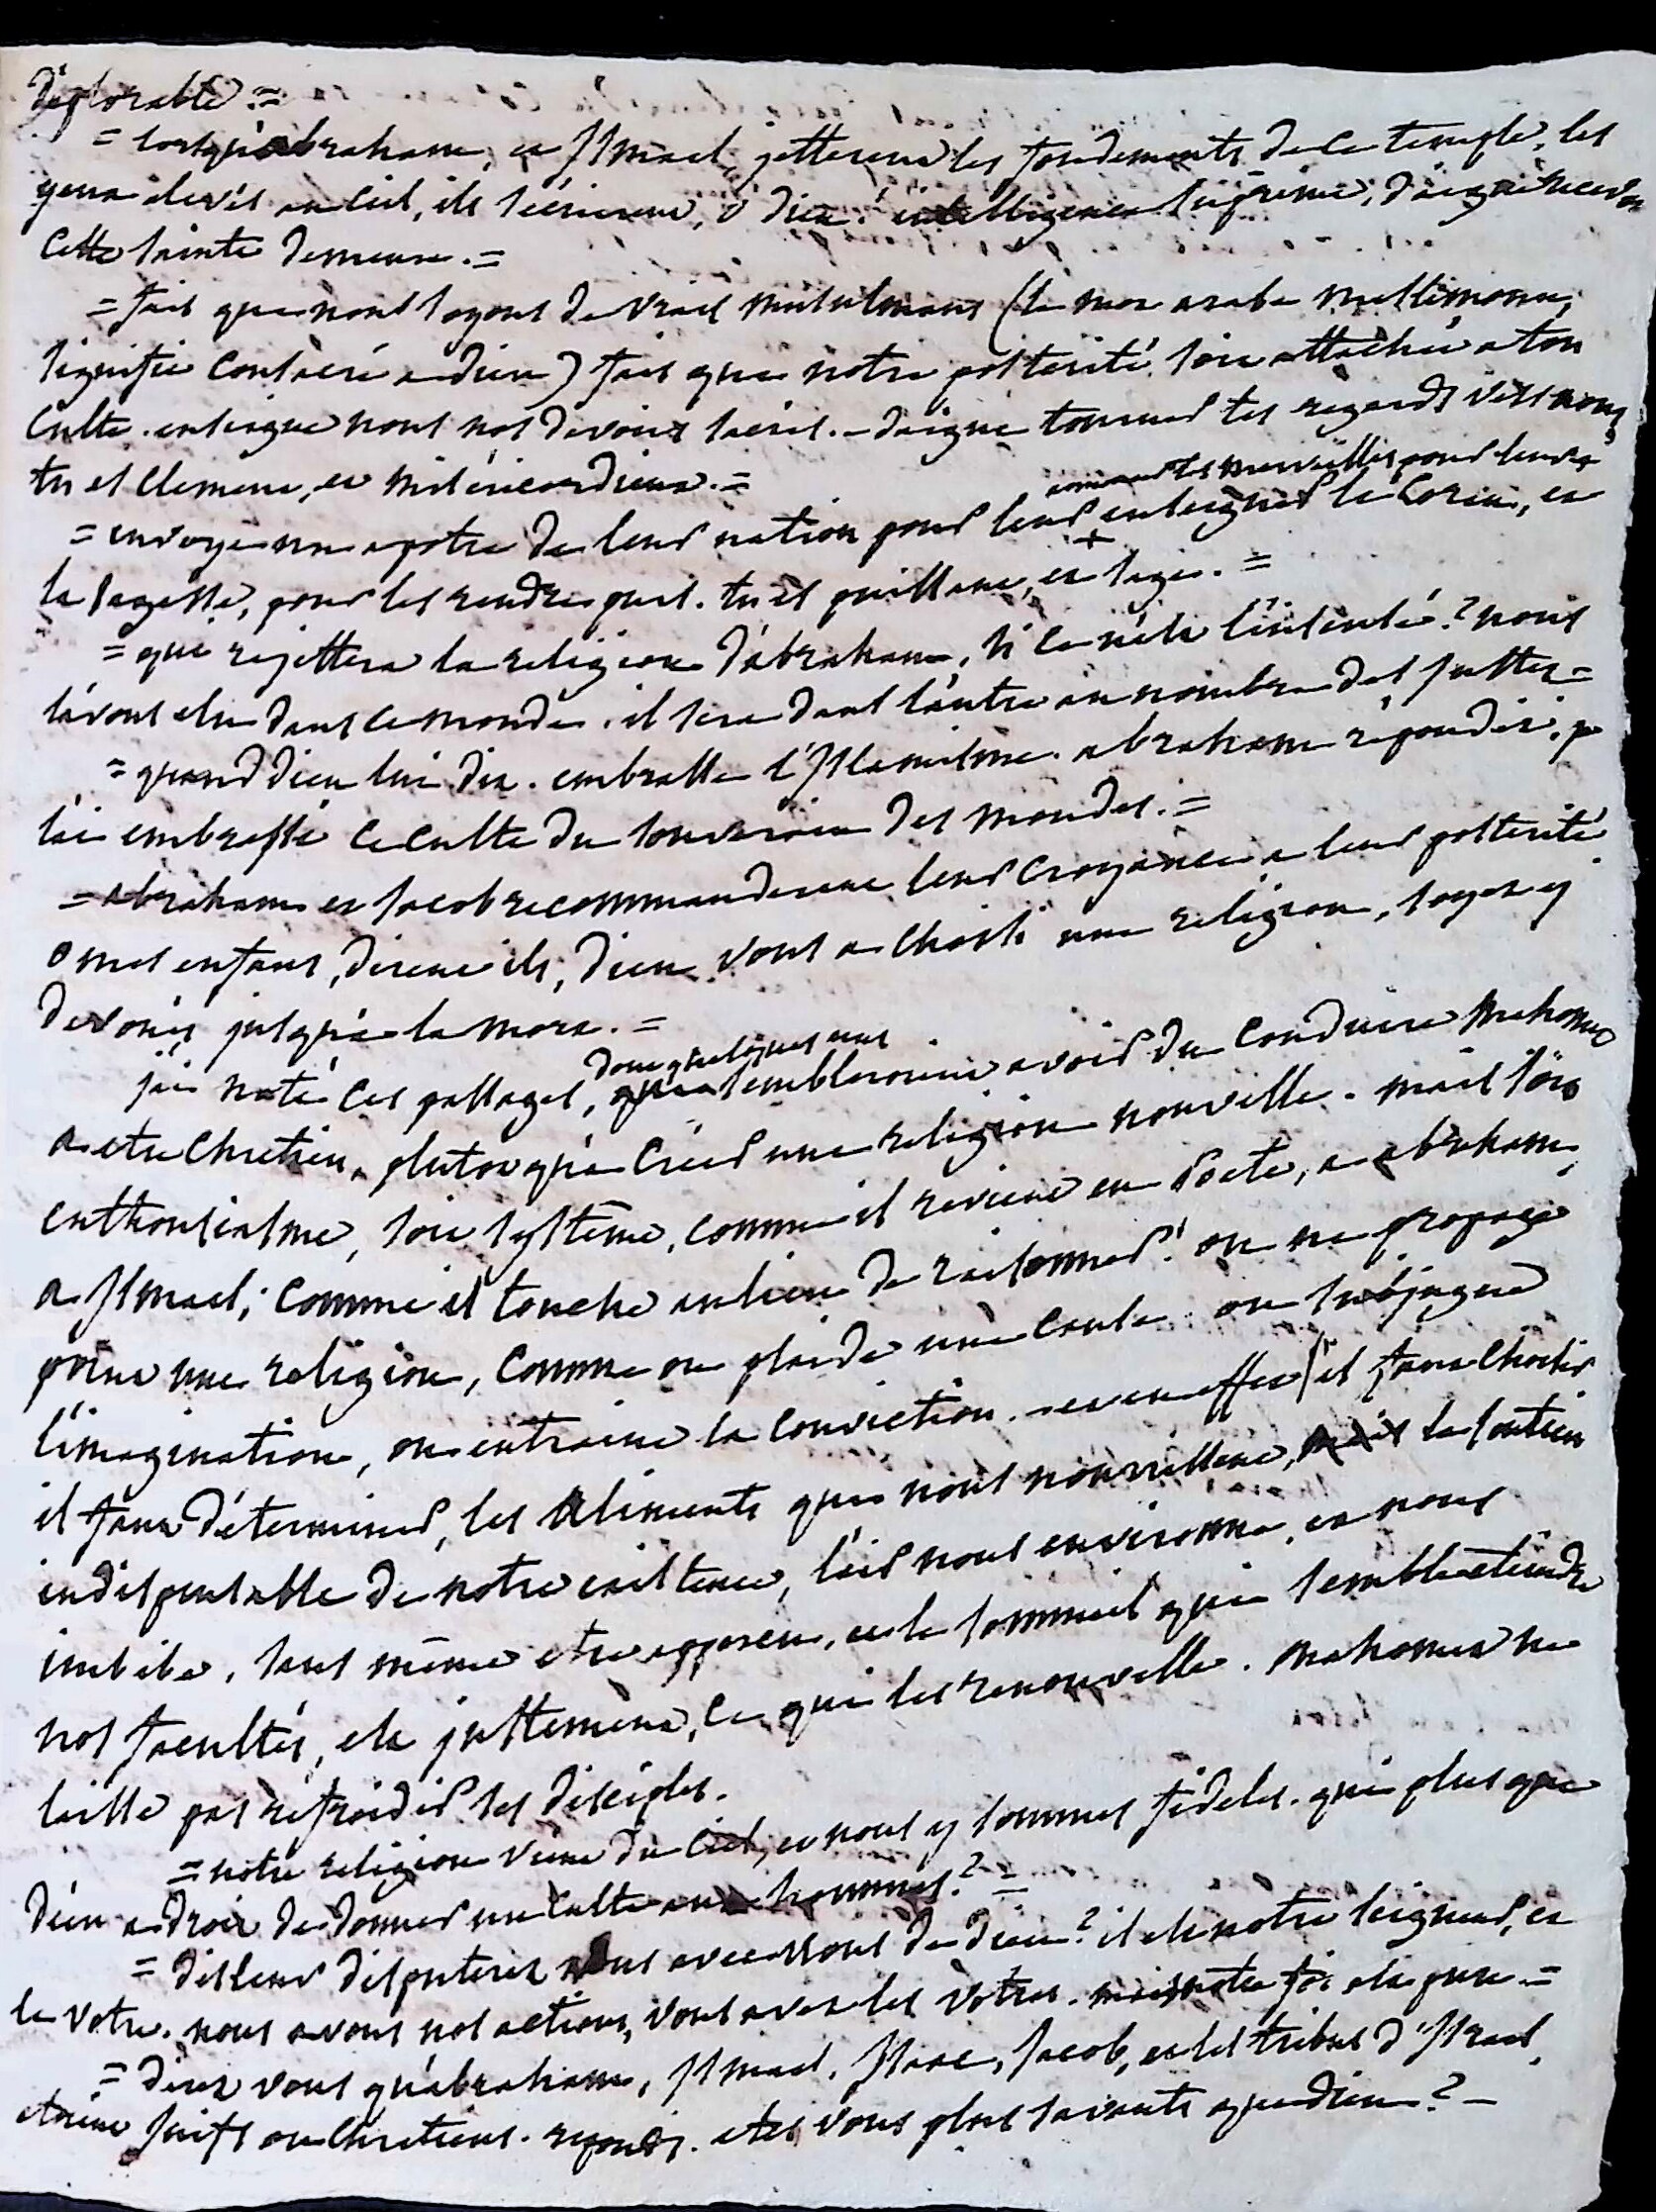 déplorable. =
= lorsqu'abraham, et Ismael jetterent les fondements de ce temple, les
yeux elevés au ciel, ils s'écrierent, ô dieu! intelligence suprême, daigne recevoir
cette sainte demeure. =
= fais que nous soyons de vrais musulmans (le mot arabe musslimonn,
signifie consacré a dieu) fais que notre postérité soit attachée a ton
culte. enseigne nous nos devoirs sacrés. – daigne tourner tes regards vers nous,
tu es clement, et miséricordieux. =
annoncer tes merveilles pour leur +
= envoye un apotre de leur nation pour leur + enseigner le Coran, et
la sagesse, pour les rendre purs. tu es puissant, et sage. =
= qui rejettera la religion d'abraham, si ce n'est l'insensé? nous
l'avons elu dans ce monde. il sera dans l'autre au nombre des justes =
= quand dieu lui dit. embrasse l'Islamisme. abraham répondit, je
l'ai embrassé ce culte du souverain des mondes. =
= abraham et Jacob recommanderent leur croyance a leur postérité
o mes enfans, dirent ils, dieu vous a choisi une religion, soyez y
devoués jusqu'a la mort. =
dont quelques uns
j'ai noté ces passages, sembleroient avoir du conduire Mahomet
a etre chretien, plutot qu'a créer une religion nouvelle. mais soit
enthousiasme, soit systême, comme il revient en Poete, a abraham,
a Ismael; comme il touche au lieu de raisonner! on ne propage
point une religion, comme on plaide une cause on subjugue
l'imagination, on entraine la conviction. – et en effet il faut choisir
il faut déterminer, les alimens qui nous nourrissent, le soutien
indispensable de notre existence, l'air nous environne, et nous
imbibe, sans même etre apperçu, et le sommeil qui semble eteindre
nos facultés, est justement, ce qui les renouvelle. Mahomet ne
laisse pas refroidir ses disciples.
= notre religion vient du Ciel, et nous y sommes fideles. qui plus que
dieu a droit de donner un culte aux hommes? =
= dis leur disputerez vous avec nous de dieu? il est notre seigneur, et
le votre. nous avons nos actions, vous avez les votres. mais notre foi est pure. =
= direz vous qu'abraham, Ismael, Isaac, Jacob, et les tribus d'Israel
etoient Juifs ou Chretiens. reponds. etes vous plus savants que dieu? –